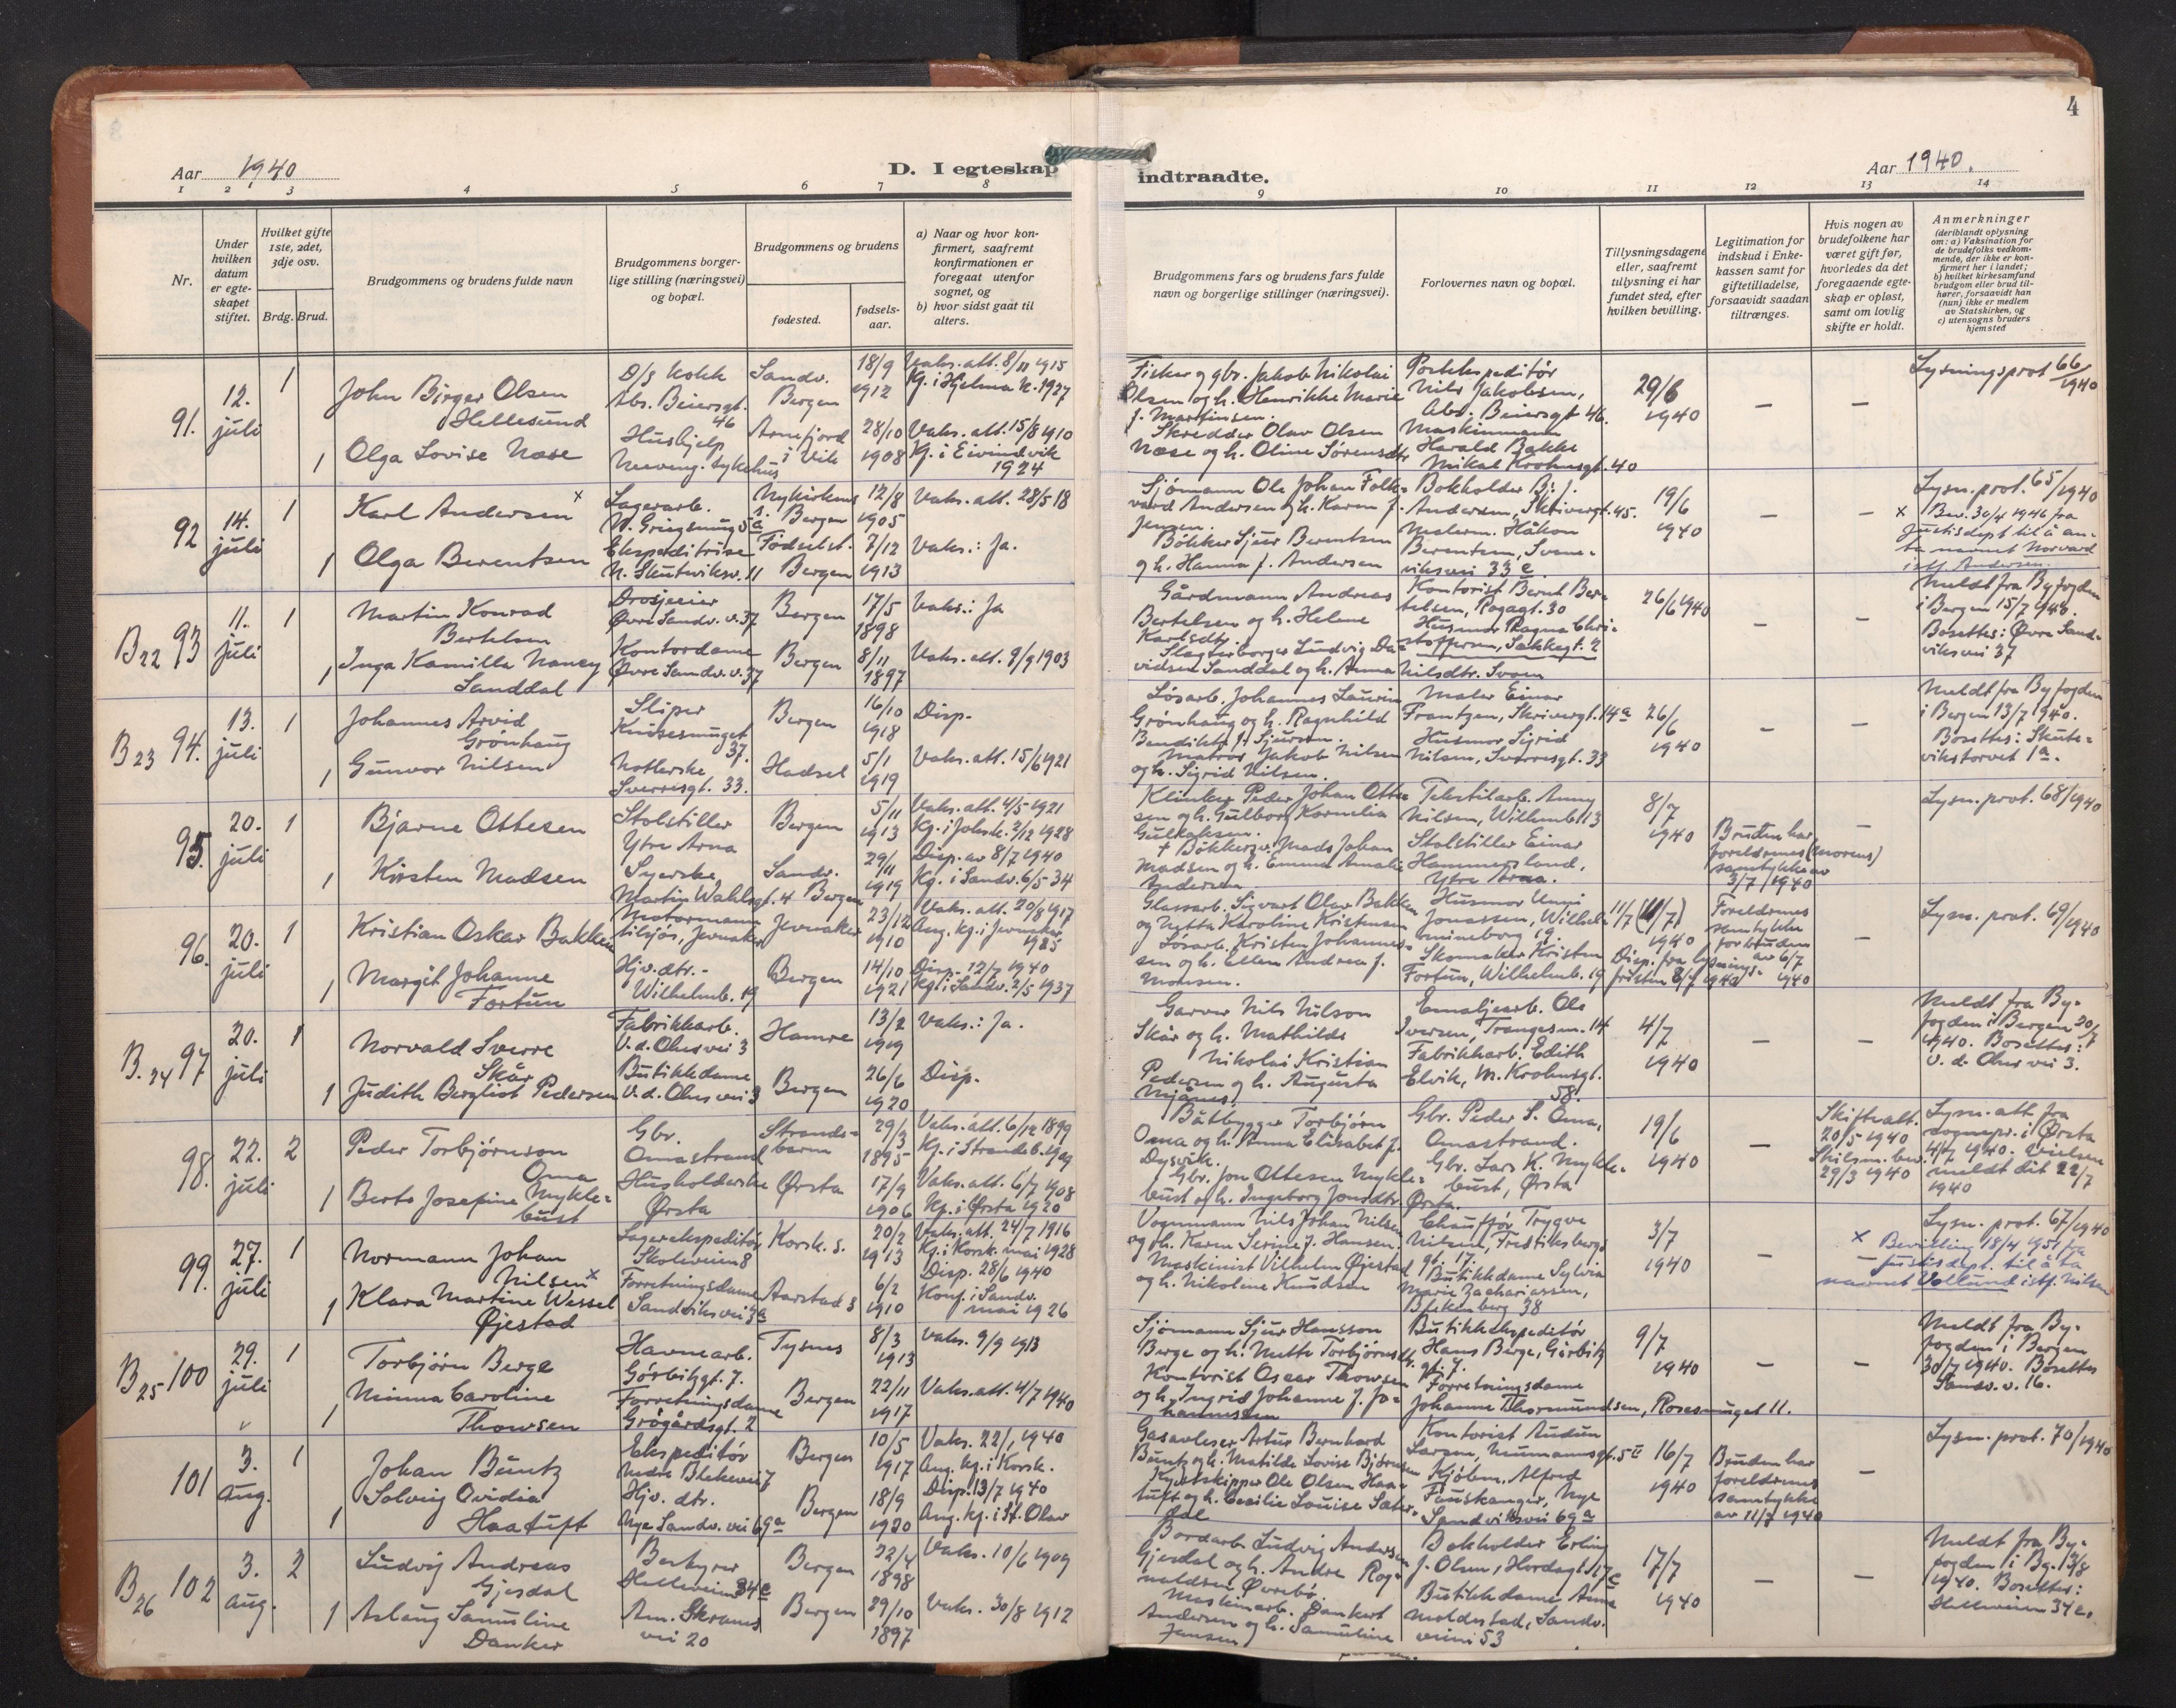 4
Aar 1940
D. I egteskap
indtraadte.
Aar 1940.
1 2 3 4 5 6 7 8
9 10 11 12 13 14
Nr.
Under hvilken datum er egte-skapet stiftet.
Hvilket gifte 1ste, 2det, 3dje osv.
Brdg. Brud.
Brudgommens og brudens fulde navn
Brudgommens borger-lige stilling (næringsvei) og bopæl.
Brudgommens og brudens
fødested.
fødsels-aar.
a) Naar og hvor kon-firmert, saafremt konfirmationen er foregaat utenfor sognet, og
b) hvor sidst gaat til alters.
Brudgommens fars og brudens fars fulde navn og borgerlige stillinger (næringsvei).
Forlovernes navn og bopæl.
Tillysningsdagene eller, saafremt tillysning ei har fundet sted, efter hvilken bevilling.
Legitimation for indskud i Enke-kassen samt for giftetilladelse, forsaavidt saadan tiltrænges.
Hvis nogen av brudefolkene har været gift før, hvorledes da det foregaaende egte-skap er opløst, samt om lovlig skifte er holdt.
Anmerkninger (deriblandt oplysning om: a) Vaksination for de brudefolks vedkom-mende, der ikke er kon-firmert her i landet; b) hvilket kirkesamfund brudgom eller brud til-hører, forsaavidt han (hun) ikke er medlem av Statskirken, og c) utensogns bruders hjemsted
91. 12. juli
1 John Birger Olsen Hellesund
D/S kokk Abs. Beiersgt. 46
Sandv. Bergen
18/9 1912
Vaks. att. 8/11 1915
Kg. i Hjelma k. 1927
1 Olga Lovise Næse
Hushjelp Neveng. sykehus
Arnefjord i Vik
28/10 1908
Vaks. att. 15/8 1910
Kg. i Eivindvik 1924
Fisker og gbr. Jakob Nikolai
Olsen og h. Henrikke Marie
f. Martinsen.
Skredder Olav Olsen
Næse og h. Oline Sørensdtr
Postekspeditør
Nils Jakobsen,
Abs. Beiersgt 46.
Maskinmann
Harald Bakke
Mikal Krohnsgt. 40
29/6 1940
— —
Lysningsprot 66/1940
92 14. juli
1 Karl Andersen x
Lagerarb.
N. Griegsmug 5a
Nykirkens s. Bergen
12/8 1905
Vaks. att. 28/5 18
1 Olga Berentsen
Ekspeditrise
N. Skuteviksv. 11
Fødselst. Bergen
7/12 1913
Vaks.: Ja.
Sjømann Ole Johan Folk-
vard Andersen og h. Karen f.
Jensen.
Bøkker Sjur Berentsen
og h. Hanna f. Andersen
Bokholder Bj. f.
Andersen, Skrivergt. 45.
Malerm. Håkon
Berentsen, Svene-
viksvei 33 e
19/6 1940
— —
Lysn. prot. 65/1940
x Bev. 30/4 1946 fra
Justisdept til å an-
ta navnet Norvard
istf. Andersen.
B22 93 11. juli
1 Martin Konrad Bertelsen
Drosjeeier
Øvre Sandv. v. 37
Bergen
17/5 1898
Vaks.: Ja
1 Inga Kamilla Nancy Sanddal
Kontordame
Øvre Sandv. v. 37
Bergen
8/11 1897
Vaks. att. 9/9 1903
Gårdmann Andreas
Bertelsen og h. Helene
Karlsdtr.
Slagterborger Ludvig Da-
vidsen Sanddal og h. Anna Nilsdtr. Svom
Kontorist Bernt Ber-
telsen, Rogagt. 30
Husmor Ragna Chri-
stoffersen, Sekkegt. 2
26/6 1940
— —
Meldt fra Byfogden
i Bergen 15/7 1940.
Bosettes: Øvre Sand-
viksvei 37
B23 94. 13. juli
1 Johannes Arvid Grønhaug
Sliper
Knøsesmuget 37.
Bergen
16/10 1918
Disp.
1 Gunvor Nilsen
Notlerske
Sverresgt. 33.
Hadsel
5/1 1919
Vaks. att. 15/6 1921
Løsarb. Johannes Laurin
Grønhaug og h. Ragnhild
Bendikte f. Sjursen.
Matros Jakob Nilsen
og h. Sigrid Nilsen.
Maler Einar
Frantzen, Skrivergt. 14a
Husmor Sigrid
Nilsen, Sverresgt. 33
26/6 1940
— —
Meldt fra Byfogden
i Bergen 13/7 1940.
Bosettes: Skute-
vikstorvet 1a.
95. 20. juli
1 Bjarne Ottesen
Stolstiller
Ytre Arna
Bergen
5/11 1913
Vaks. att. 4/5 1921
Kg. i Johsk. 2/12 1928
1 Kirsten Madsen
Syerske,
Martin Wahlsgt. 4
Sandv. Bergen
29/11 1919
Disp. av 8/7 1940
Kg. i Sandv. 6/5 34
Klinker Peder Johan Otte-
sen og h. Gulborg Kornelia
Gulhaksen.
+ Bøkkersv. Mads Johan
Madsen og h. Emma Amalie
Andersen
Tekstilarb. Anny
Nilsen, Wilhmb. 13
Stolstiller Einar
Hammersland,
Ytre Arna.
8/7 1940
Bruden har
foreldrenes (morens)
samtykke av
3/7 1940
—
Lysn. prot. 68/1940
96. 20. juli
1 Kristian Oskar Bakken
Motormann
tilsjøs, Jevnaker
Jevnaker
23/12 1910
Vaks. att. 20/8 1917
Aug. kg. i Jevnaker 1925
1 Margit Johanne Fortun
Hjv. dtr. -
Wilhelmb. 19
Bergen
14/10 1921
Disp. 12/7 1940
Kg. i Sandv. 2/5 1937
Glassarb. Sigvart Olav Bakken
og Nytta Karoline Kristensen
Løsarb. Kristen Johannes-
sen og h. Ellen Andrea f.
Monsen.
Husmor Unni
Jonassen, Wilhel-
mineborg 19.
Skomaker Kristen
Fortun, Wilhelmb. 19
11/7
1940
Disp. fra lysnings-
fristen 8/7 1940
Foreldrenes
samtykke
for bruden
av 6/7
1940
—
Lysn. prot. 69/1940
B.24 97 20. juli
1 Norvald Sverre Skår
Fabrikkarb.
V. d. Ohes vei 3
Hamre
13/2 1919
Vaks.: Ja.
1 Judith Bergliot Pedersen
Butikkdame
V. d. Ohes vei 3
Bergen
26/6 1920
Disp.
Garver Nils Nilson
Skår og h. Mathilde
Nikolai Kristian
Pedersen og h. Augusta
Mjånes.
Emaljearb. Ole
Iversen, Trangesm. 14
Fabrikkarb. Edith
Elvik, M. Krohnsgt.
58.
4/7 1940
— —
Meldt fra By-
fogden i Bergen 20/7
1940. Bosettes:
V. d. Ohes vei 3.
98. 22. juli
2 Peder Torbjørnson Oma
Gbr.
Omastrand
Strande-
barm
29/3 1895
Vaks. att. 6/12 1899
Kg. i Strandeb. 1909
1 Berte Josefine Mykle-
bust
Husholderske
Ørsta
Ørsta
17/9 1906
Vaks. att. 6/7 1908
Kg. i Ørsta 1920
Båtbygger Torbjørn
Oma og h. Anna Elisabet f.
Dysvik.
Gbr. Jon Ottesen Mykle-
bust og h. Ingeborg Jonsdtr.
Gbr. Peder S. Oma,
Omastrand.
Gbr. Lars K. Mykle-
bust, Ørsta
Ørsta.
19/6 1940
—
Skifteatt.
20/5 1940
Skilsm. bev.
29/3 1940
Lysn. att. fra
sognepr. i Ørsta
4/7 1940. Vielsen
meldt dit 22/7
1940
99. 27. juli
1 Normann Johan Nilsen x
Lagerekspeditør
Skoleveien 8
Korsk. s.
20/2 1913
Vaks. att. 24/7 1916
Kg. i Korsk. mai 1928
1 Klara Martine Wessel Øjestad
Forretningsdame
Sandviksvei 3a
Aarstad s
6/2 1910
Disp. 28/6 1940
Konf. i Sandv.
mai 1926
Vognmann Nils Johan Nilsen
og h. Karen Serine f. Hansen.
Maskinist Vilhelm Øjestad
og h. Nikoline Knudsen
Chauffør Trygve
Nilsen, Fredriksbergs
gt. 17.
Butikkdame Sylvia
Marie Zachariassen,
Blekenberg 38
3/7 1940
— —
Lysn. prot. 67/1940
x Bevilling 18/4 1951 fra
Justisdept. til å ta
navnet Vollund istf. Nilsen
B25 100 29. juli
1 Torbjørn Berge
Havnearb.
Gørbitzgt. 7.
Tysnes
8/3 1913
Vaks. 9/9 1913
1 Minna Caroline Thowsen
Forretningsdame
Grøgårdsgt. 2
Bergen
22/11 1917
Vaks. att. 4/7 1940
Sjømann Sjur Hansson
Berge og h. Mette Torbjørnsdtr.
Kontorist Oscar Thowsen
og h. Ingrid Johanne f. Jo-
hannessen
Butikkekspeditør
Hans Berge, Gørbitz
gt. 7.
Forretningsdame
Johanne Thormundsen, Rosesmuget 11.
9/7 1940
— —
Meldt fra By-
fogden i Bergen
30/7 1940. Bosettes
Sandv. v. 16.
101 3. aug.
1 Johan Büntz
Ekspeditør
Nedre Blekevei 7
Bergen
10/5 1917
Vaks. 22/1 1940
Aug. kg. i Korsk.
1 Solveig Ovidia Haatuft
Hjv. dtr.
Nye Sandv. vei 69a
Bergen
18/9 1920
Disp. 13/7 1940
Aug. kg. i St. Olav
Gasavleser Artur Bernhard
Buntz og h. Matilde Lovise Bjørnsen
Kystskipper Ole Olsen Haa-
tuft og h. Cecilie Louise Sæter-
dal
Kontorist Audun
Larsen, Neumannsgt. 5
Kjøbm. Alfred
Fauskanger, Nye
Sandviksvei 69a
16/7 1940
Bruden har
foreldrenes
samtykke
av 11/7 1940
—
Lysn. prot. 70/1940
B26 102 3. aug.
2 Ludvig Andreas Gjesdal
Bestyrer
Helleveien 34c
Bergen
22/4 1898
Vaks. 10/6 1909
1 Aslaug Samuline Danker
Am. Skrams
vei 20
Bergen
29/10 1897
Vaks. 30/8 1912
Bordarb. Ludvig Andersen
Gjesdal og h. Andre Rog-
naldsen Øvrebø.
Maskinarb. Dankert
Andersen og h. Samuline
Jensen
Bokholder Erling
J. Olsen, Hordagt. 17c
Butikkdame Anna
Moldestad, Sandv.
veien 53
17/7 1940
— —
Meldt fra By-
fogden i Bg. 13/8
1940. Bosettes:
Helleveien 34c.